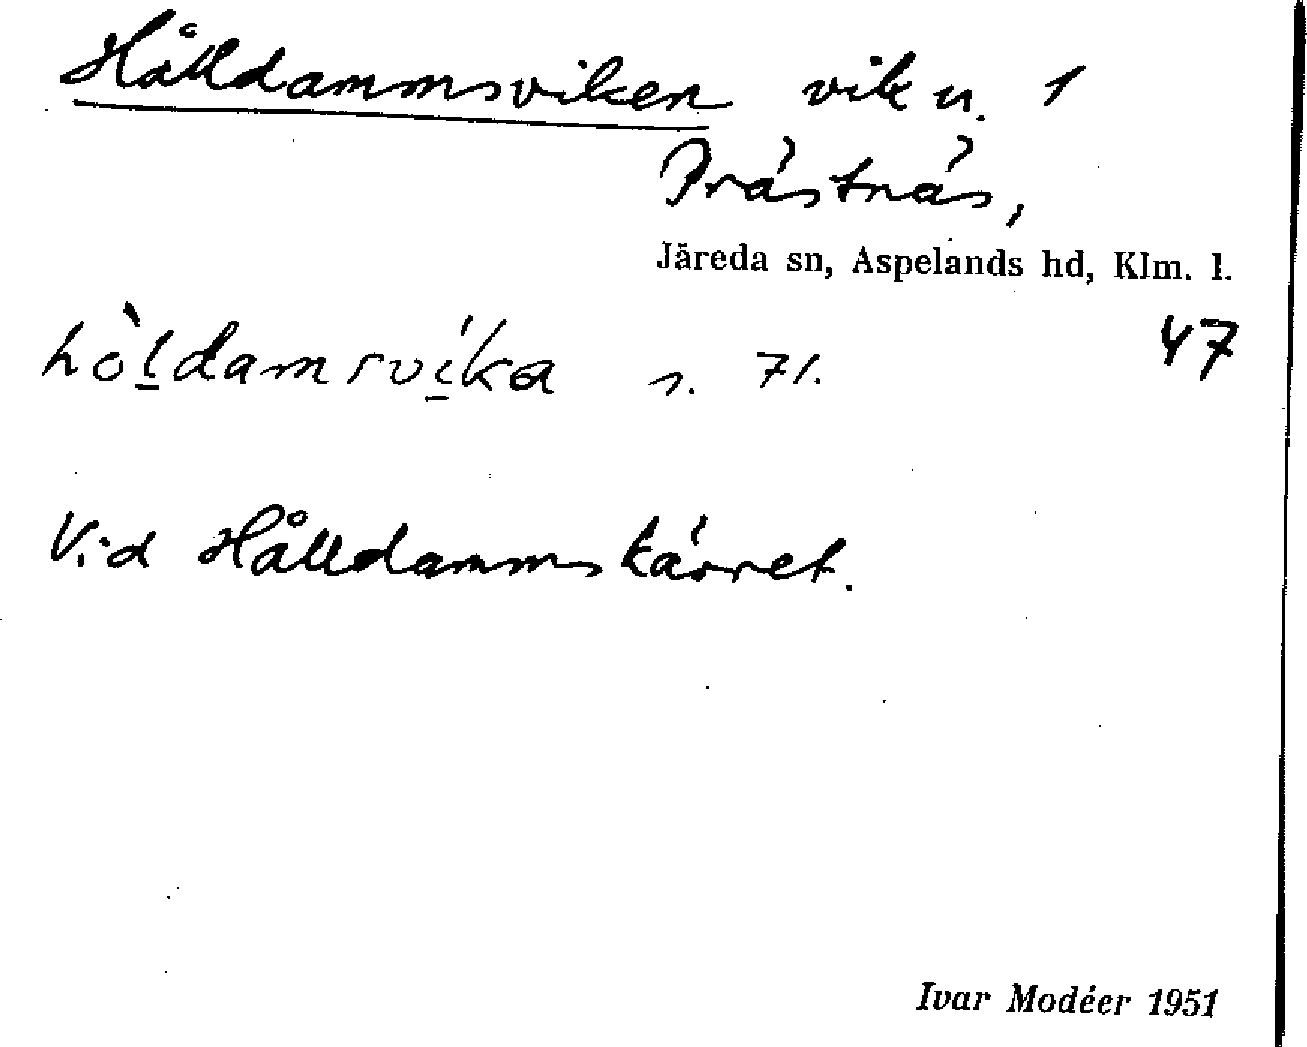 Hålldammsviken vik u. 1
Prästnäs,
Järeda sn, Aspelands hd, Klm. l.
hòl̲damsví̲ka s. 71. 47
Vid Hålldammskärret.
Ivar Modéer 1951